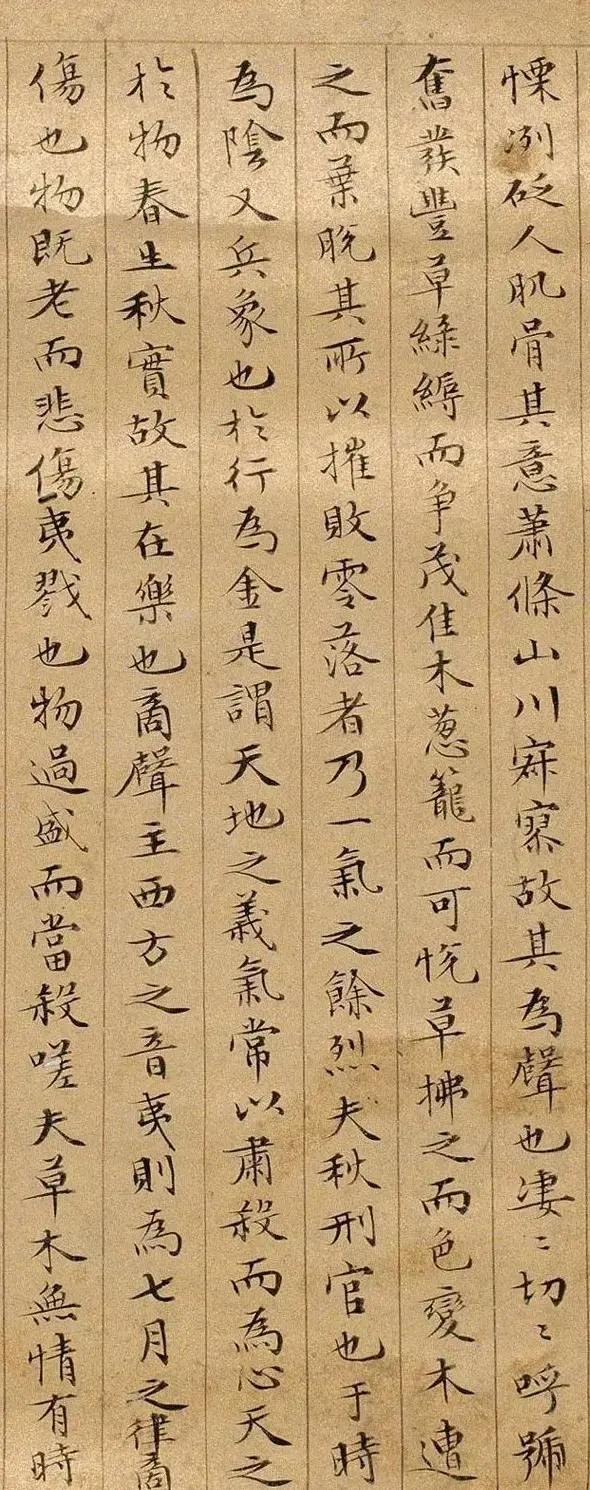 慄冽砭人肌骨其意蕭條山川寂寥故其為聲也凄〻切〻呼號
奮發豐草綠縟而爭茂佳木蔥籠而可悅草拂之而色變木遭
之而葉脫其所以摧敗零落者乃一氣之餘烈夫秋刑官也于時
為陰又兵象也於行為金是謂天地之義氣常以肅殺而為心天之
於物春生秋實故其在樂也商聲主西方之音夷則為七月之律商
傷也物既老而悲傷夷戮也物過盛而當殺嗟夫草木無情有時